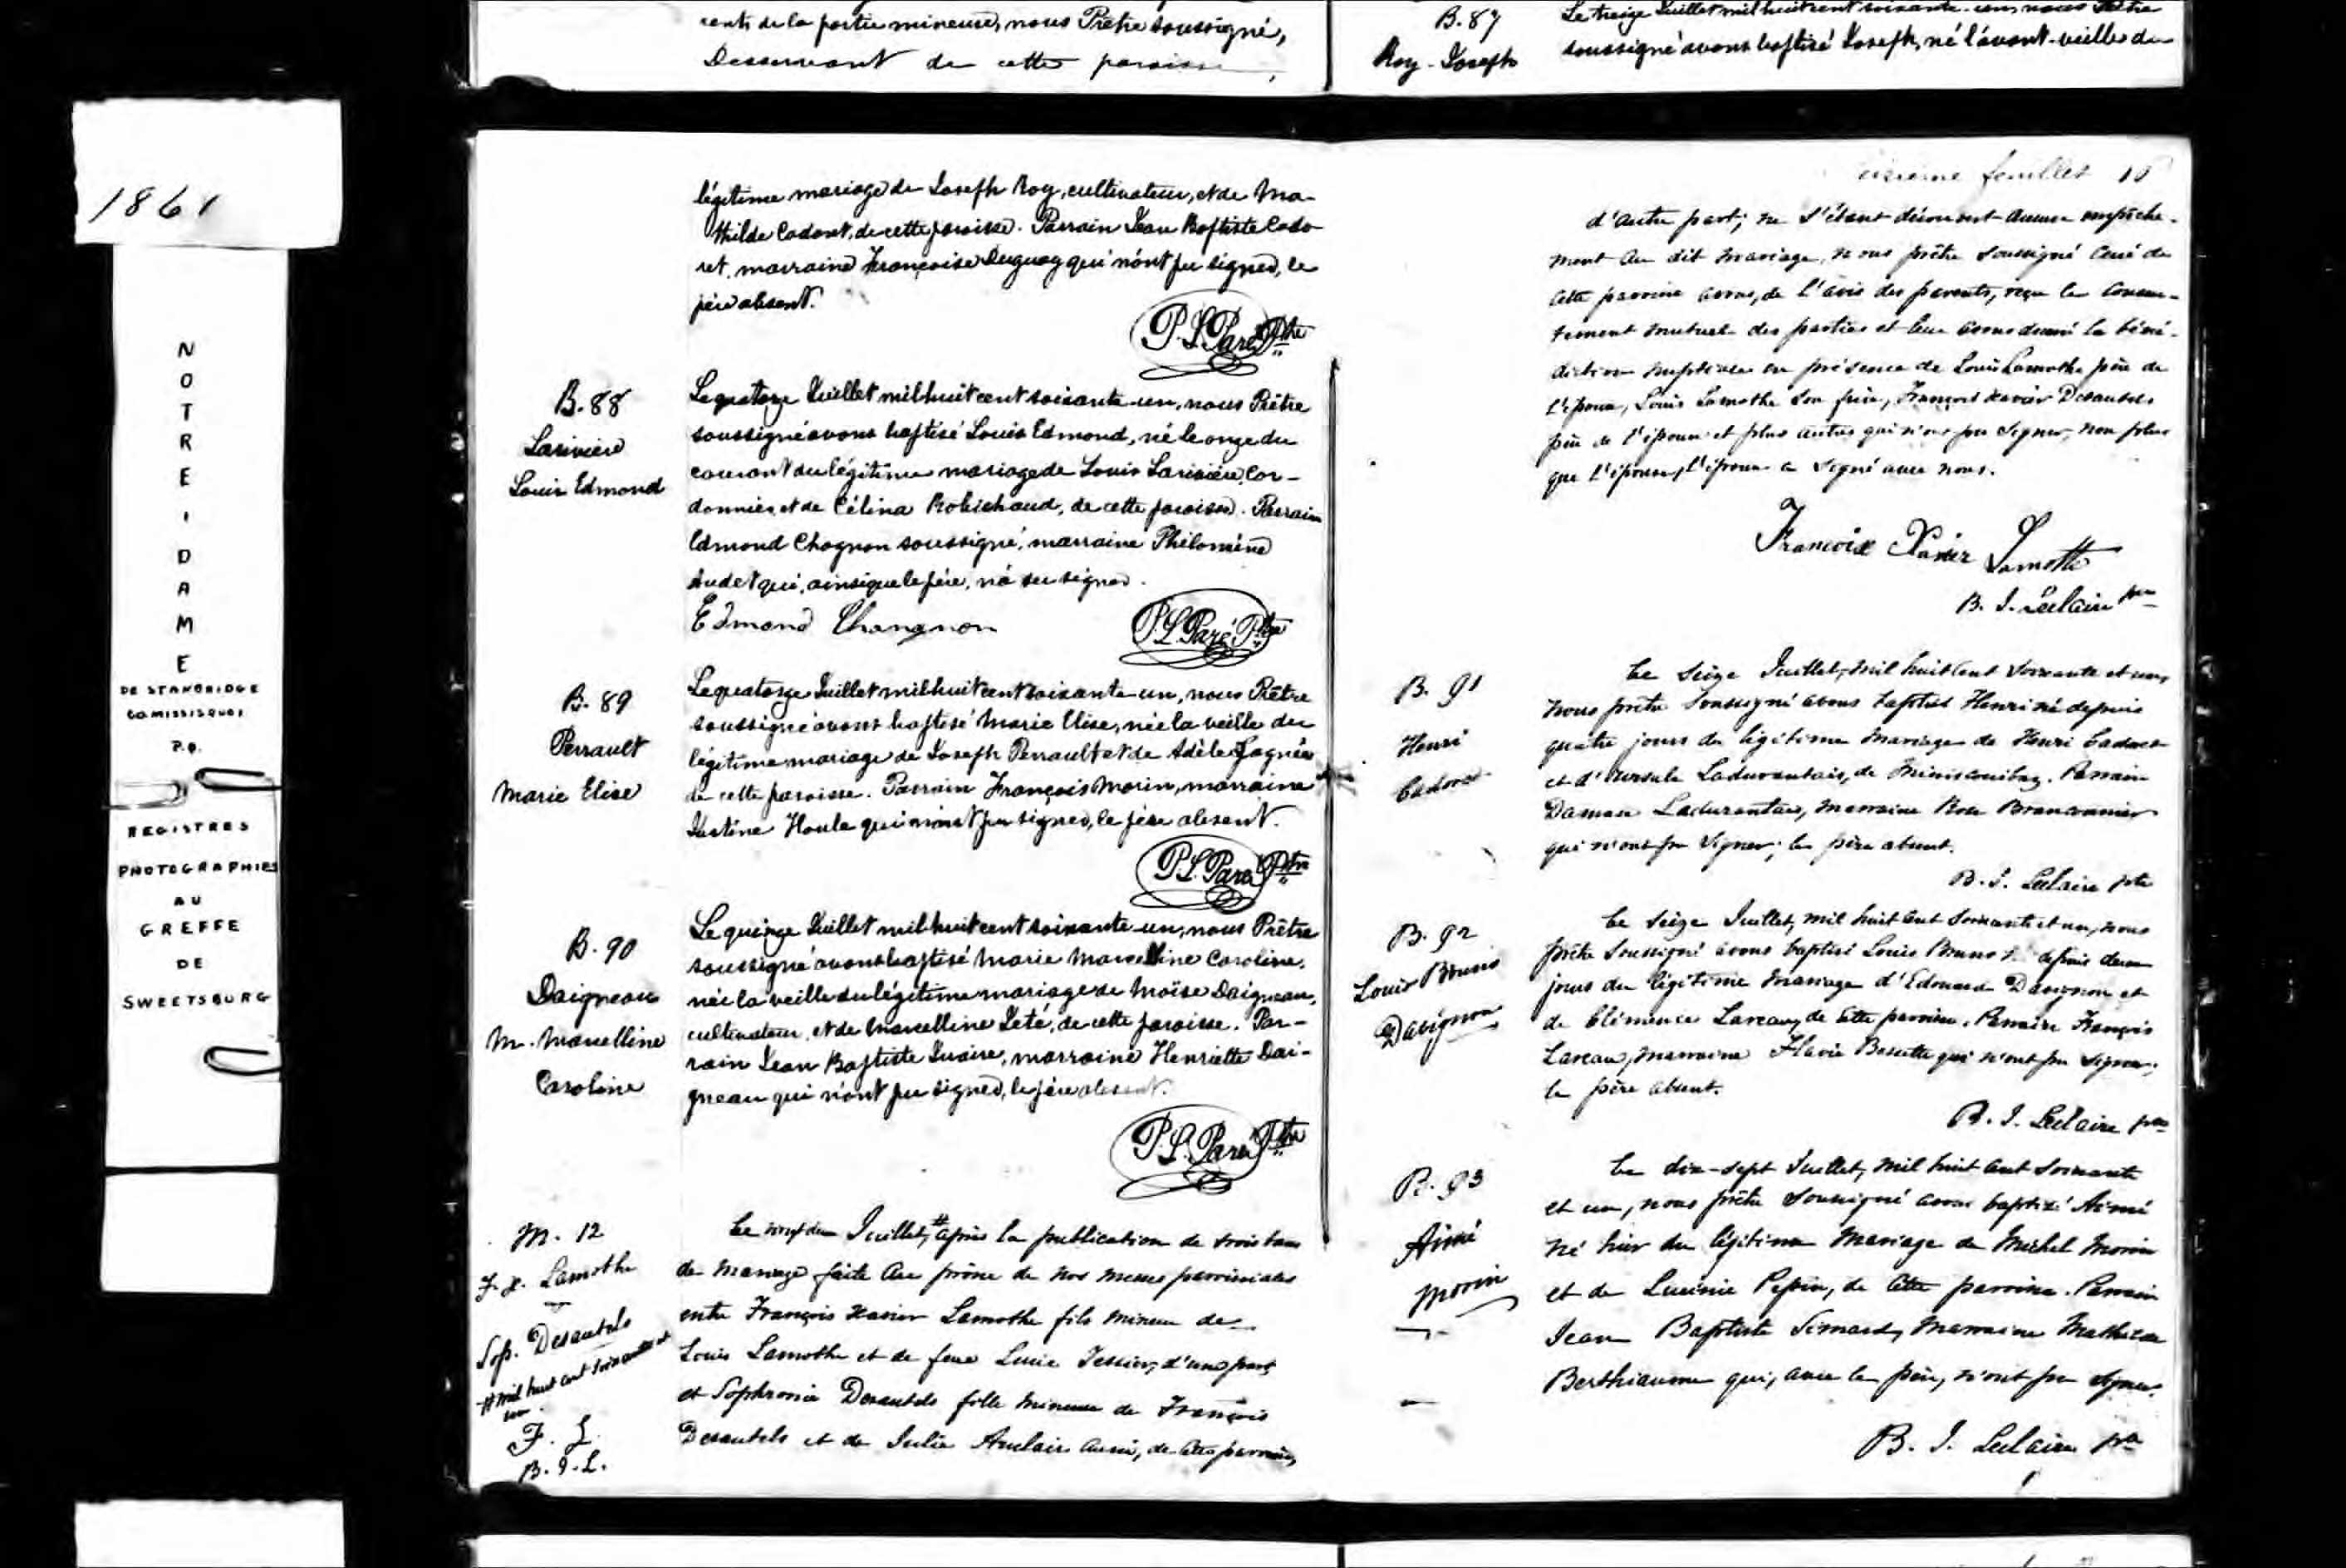 cents de la partie mineure, nous Prêtre soussigné,
Desservant de cette paroisse,
B. 87
Roy - Joseph
Le treize Juillet mil huit cent soixante-un, nous Prêtre
soussigné avons baptisé Joseph, né l'avant-veille du
1861
NOTRE-DAME
DE STANBRIDGE
Co MISSISQUOI
P.Q.
REGISTRES
PHOTOGRAPHIES
AU
GREFFE
DE
SWEETSBURG
légitime mariage de Joseph Roy, cultivateur, et de Ma-
thilde Cadoret, de cette paroisse. Parrain Jean Baptiste Cado-
ret, marraine Françoise Duguay qui n'ont pu signer, le
père absent.
P. L. Paré Ptre
B. 88
Larivière
Louis Edmond
Le quatorze Juillet mil huit cent soixante-un, nous Prêtre
soussigné avons baptisé Louis Edmond, né le onze du
courant du légitime mariage de Louis Larivière, cor-
donnier, et de Célina Robichaud, de cette paroisse. Parrain
Edmond Chagnon soussigné, marraine Philomène
Audet qui, ainsi que le père, n'a su signer.
Edmond Changnon
P. L. Paré Ptre
B. 89
Perrault
Marie Elise
Le quatorze Juillet mil huit cent soixante-un, nous Prêtre
soussigné avons baptisé Marie Elise, née la veille du
légitime mariage de Joseph Perrault et de Adèle Gagnér
de cette paroisse. Parrain François Morin, marraine
Justine Houle qui n'ont pu signer, le père absent.
P. L. Paré Ptre
B. 90
Daigneau
M. Marcelline
Caroline
Le quinze Juillet mil huit cent soixante-un, nous Prêtre
soussigné avons baptisé Marie Marcelline Caroline,
née la veille du légitime mariage de Moïse Daigneau,
cultivateur, et de Marcelline Jeté, de cette paroisse. Par-
rain Jean Baptiste Juaire, marraine Henriette Dai-
gneau qui n'ont pu signer, le père absent.
P. L. Paré Ptre
M. 12
F. X. Lamothe
Sop. Desautels
# mil huit cent soixante et
un.
F. L.
B. J. L.
Le Juillet, # après la publication de trois bans
de mariage faite au prône de nos messes paroissiales
entre François Xavier Lamothe fils mineur de
Louis Lamothe et de feue Lucie Tessier, d'une part,
et Sophronie Desautels fille mineure de François
Desautels et de Julie Auclair aussi, de cette paroisse,
feuillet
d'autre part; ne s'étant découvert aucun empêche-
ment au dit mariage, nous prêtre soussigné curé de
cette paroisse avons, de l'avis des parents, reçu le consen-
tement mutuel des parties et leur avons donné la béné-
diction nuptiale en présence de Louis Lamothe père de
l'époux, Louis Lamothe son frère, François Xavier Desautels
père de l'épouse et plus autres qui n'ont pu signer, non plus
que l'épouse, l'époux a signé avec nous.
Francoix Xavier Lamothe
B. J. Leclaire ptre
B. 91
Henri
Cadoret
Le seize Juillet, mil huit cent soixante et un,
nous prêtre soussigné avons baptisé Henri né depuis
quatre jours du légitime mariage de Henri Cadoret
et d'Ursule Ladurantais, de. Parrain
Damase Ladurantais, marraine Rose
qui n'ont pu signer; le père absent.
B. J. Leclaire ptre
B. 92
Louis Bruno
Davignon
Le seize Juillet, mil huit cent soixante et un, nous
prêtre soussigné avons baptisé Louis Bruno né depuis deux
jours du légitime mariage d'Edouard Davignon et
de Clémence Lareau, de cette paroisse. Parrain François
Lareau, marraine Flavie Bessette qui n'ont pu signer;
le père absent.
B. J. Leclaire ptre
B. 93
Aimé
Morin
Le dix-sept Juillet, mil huit cent soixante
et un, nous prêtre soussigné avons baptisé Aimé
né hier du légitime mariage de Michel Morin
et de Lucinie Pepin, de cette paroisse. Parrain
Jean Baptiste Simard, marraine Mathilde
Berthiaume qui, avec le père, n'ont pu signer.
B. J. Leclaire ptre